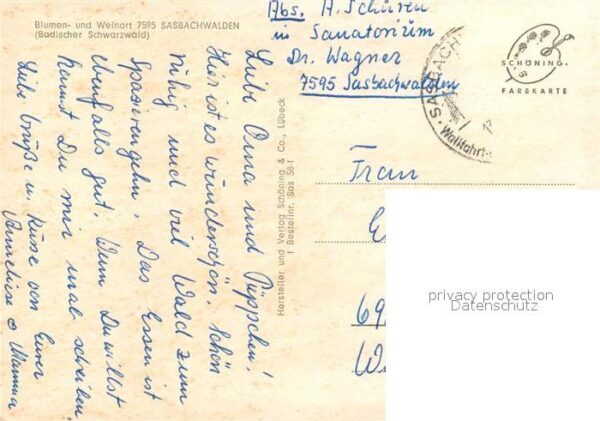 Blumen- und Weinort 7595 SASBACHWALDEN
(Badischer Schwarzwald)
Abs. A. Schüren
in Sanatorium
Dr. Wagner
7595 Sasbachwalden
SCHÖNING-
FARBKARTE
SASBACH
Wallfahrt-
Liebe Oma und Püppchen!
Hier ist es wunderschön. Schön
ruhig und viel Wald zum
Spazierengehn. Das Essen ist
ebenfalls gut. Wenn Du willst
kannst Du mir mal schreiben
Liebe Grüße u. Küsse von Eurer
Anneliese & Mamma
Hersteller und Verlag Schöning & Co., Lübeck
f Bestellnr. Sas 58-f
Frau
69
privacy protection
Datenschutz